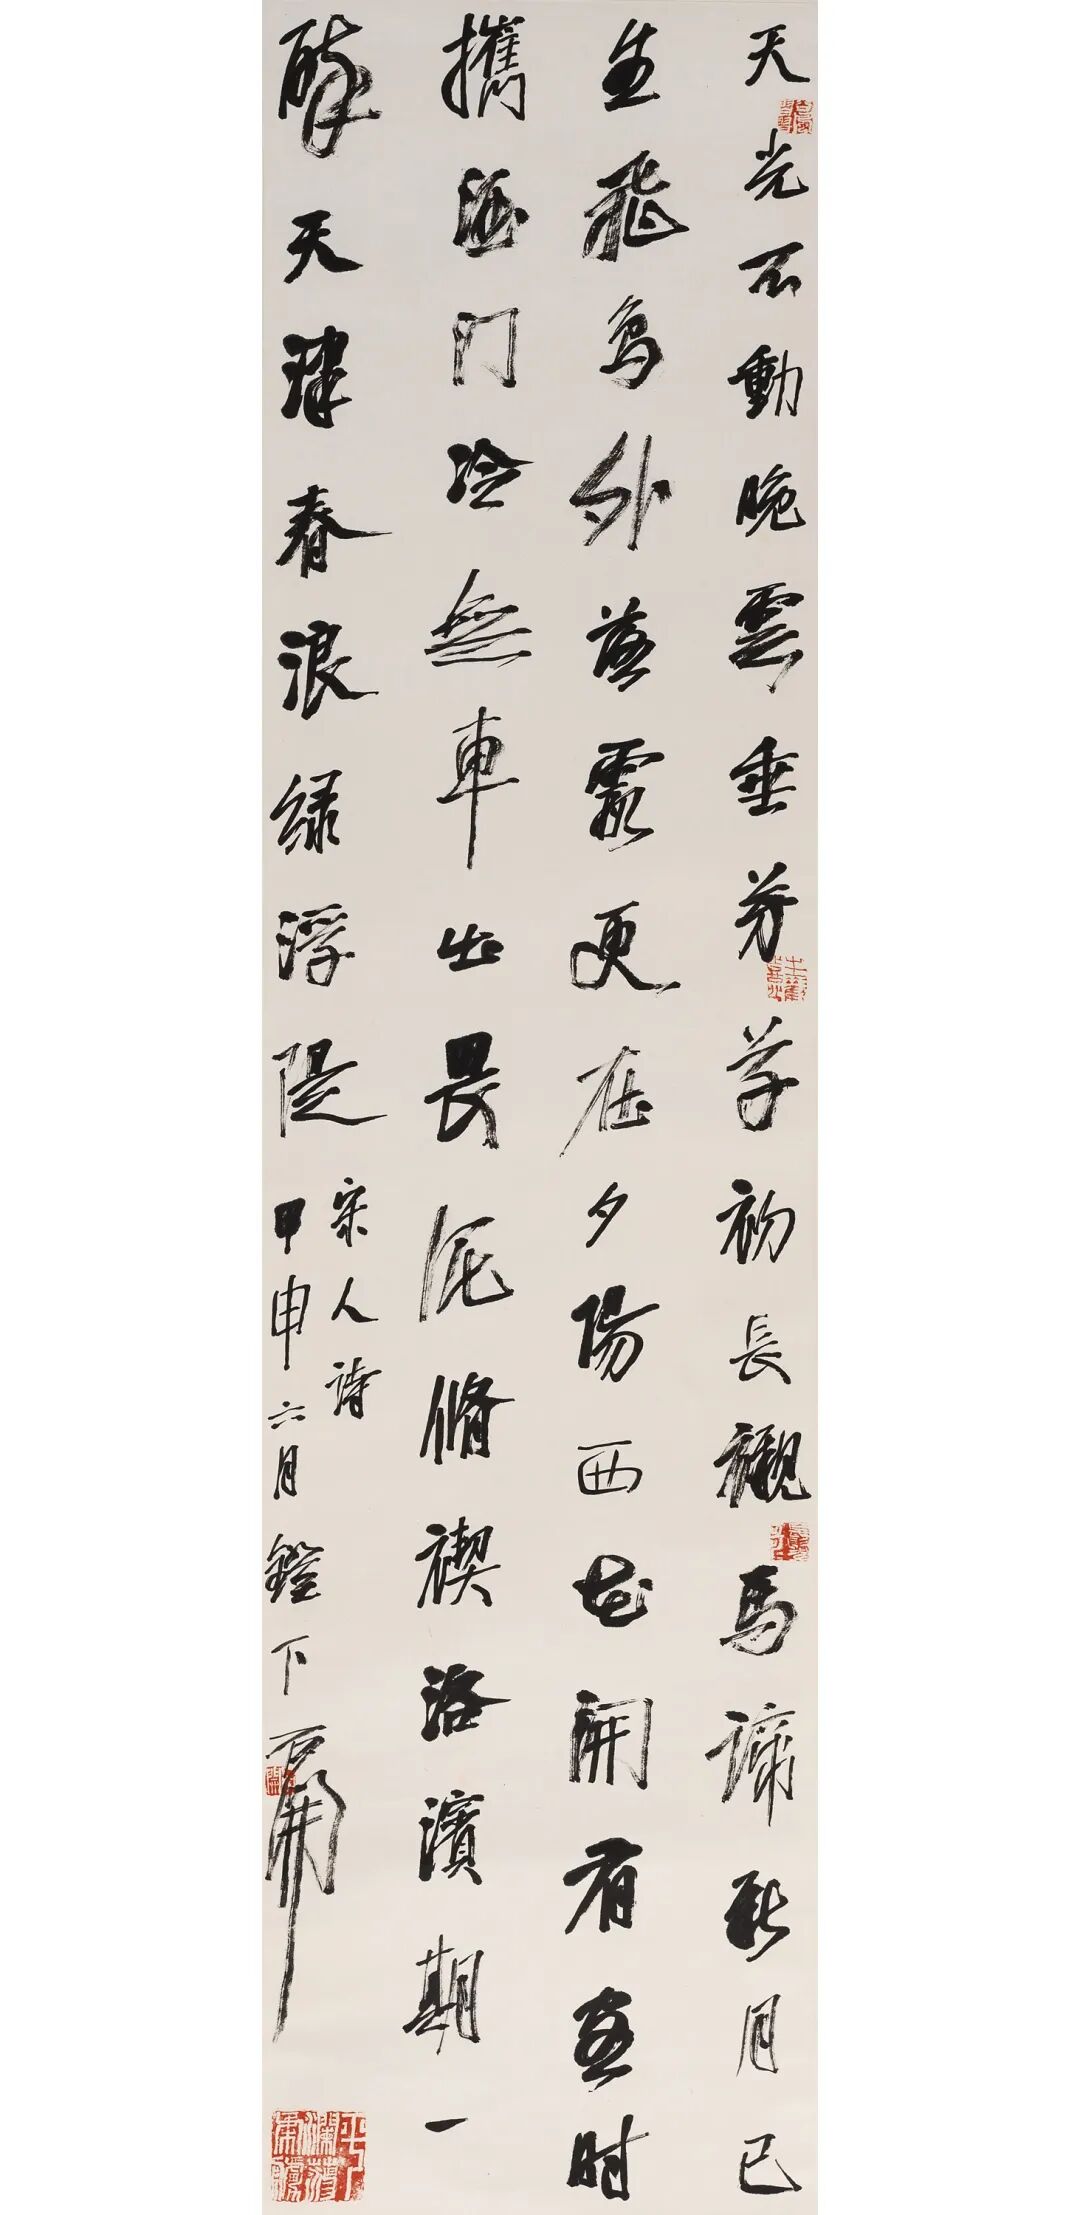 天光不動晚雲垂芳草初長襯馬蹄新月已
生飛鳥外落霞更在夕陽西花開有客時
攜酒門冷無車出畏泥脩禊洛濱期一
醉天津春浪緑浮隄
宋人詩
甲申六月鐙下石開